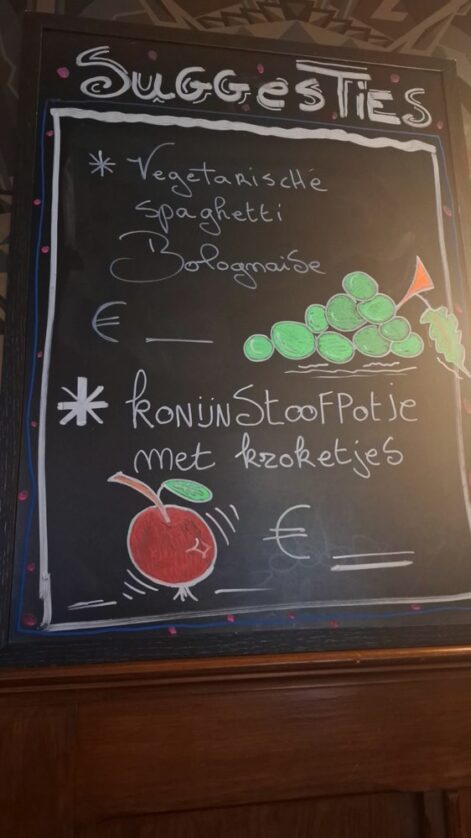 SuggesTies
* Vegetarische
spaghetti
Bolognaise
€ __
* konijnStoofpotje
met kroketjes
€ __